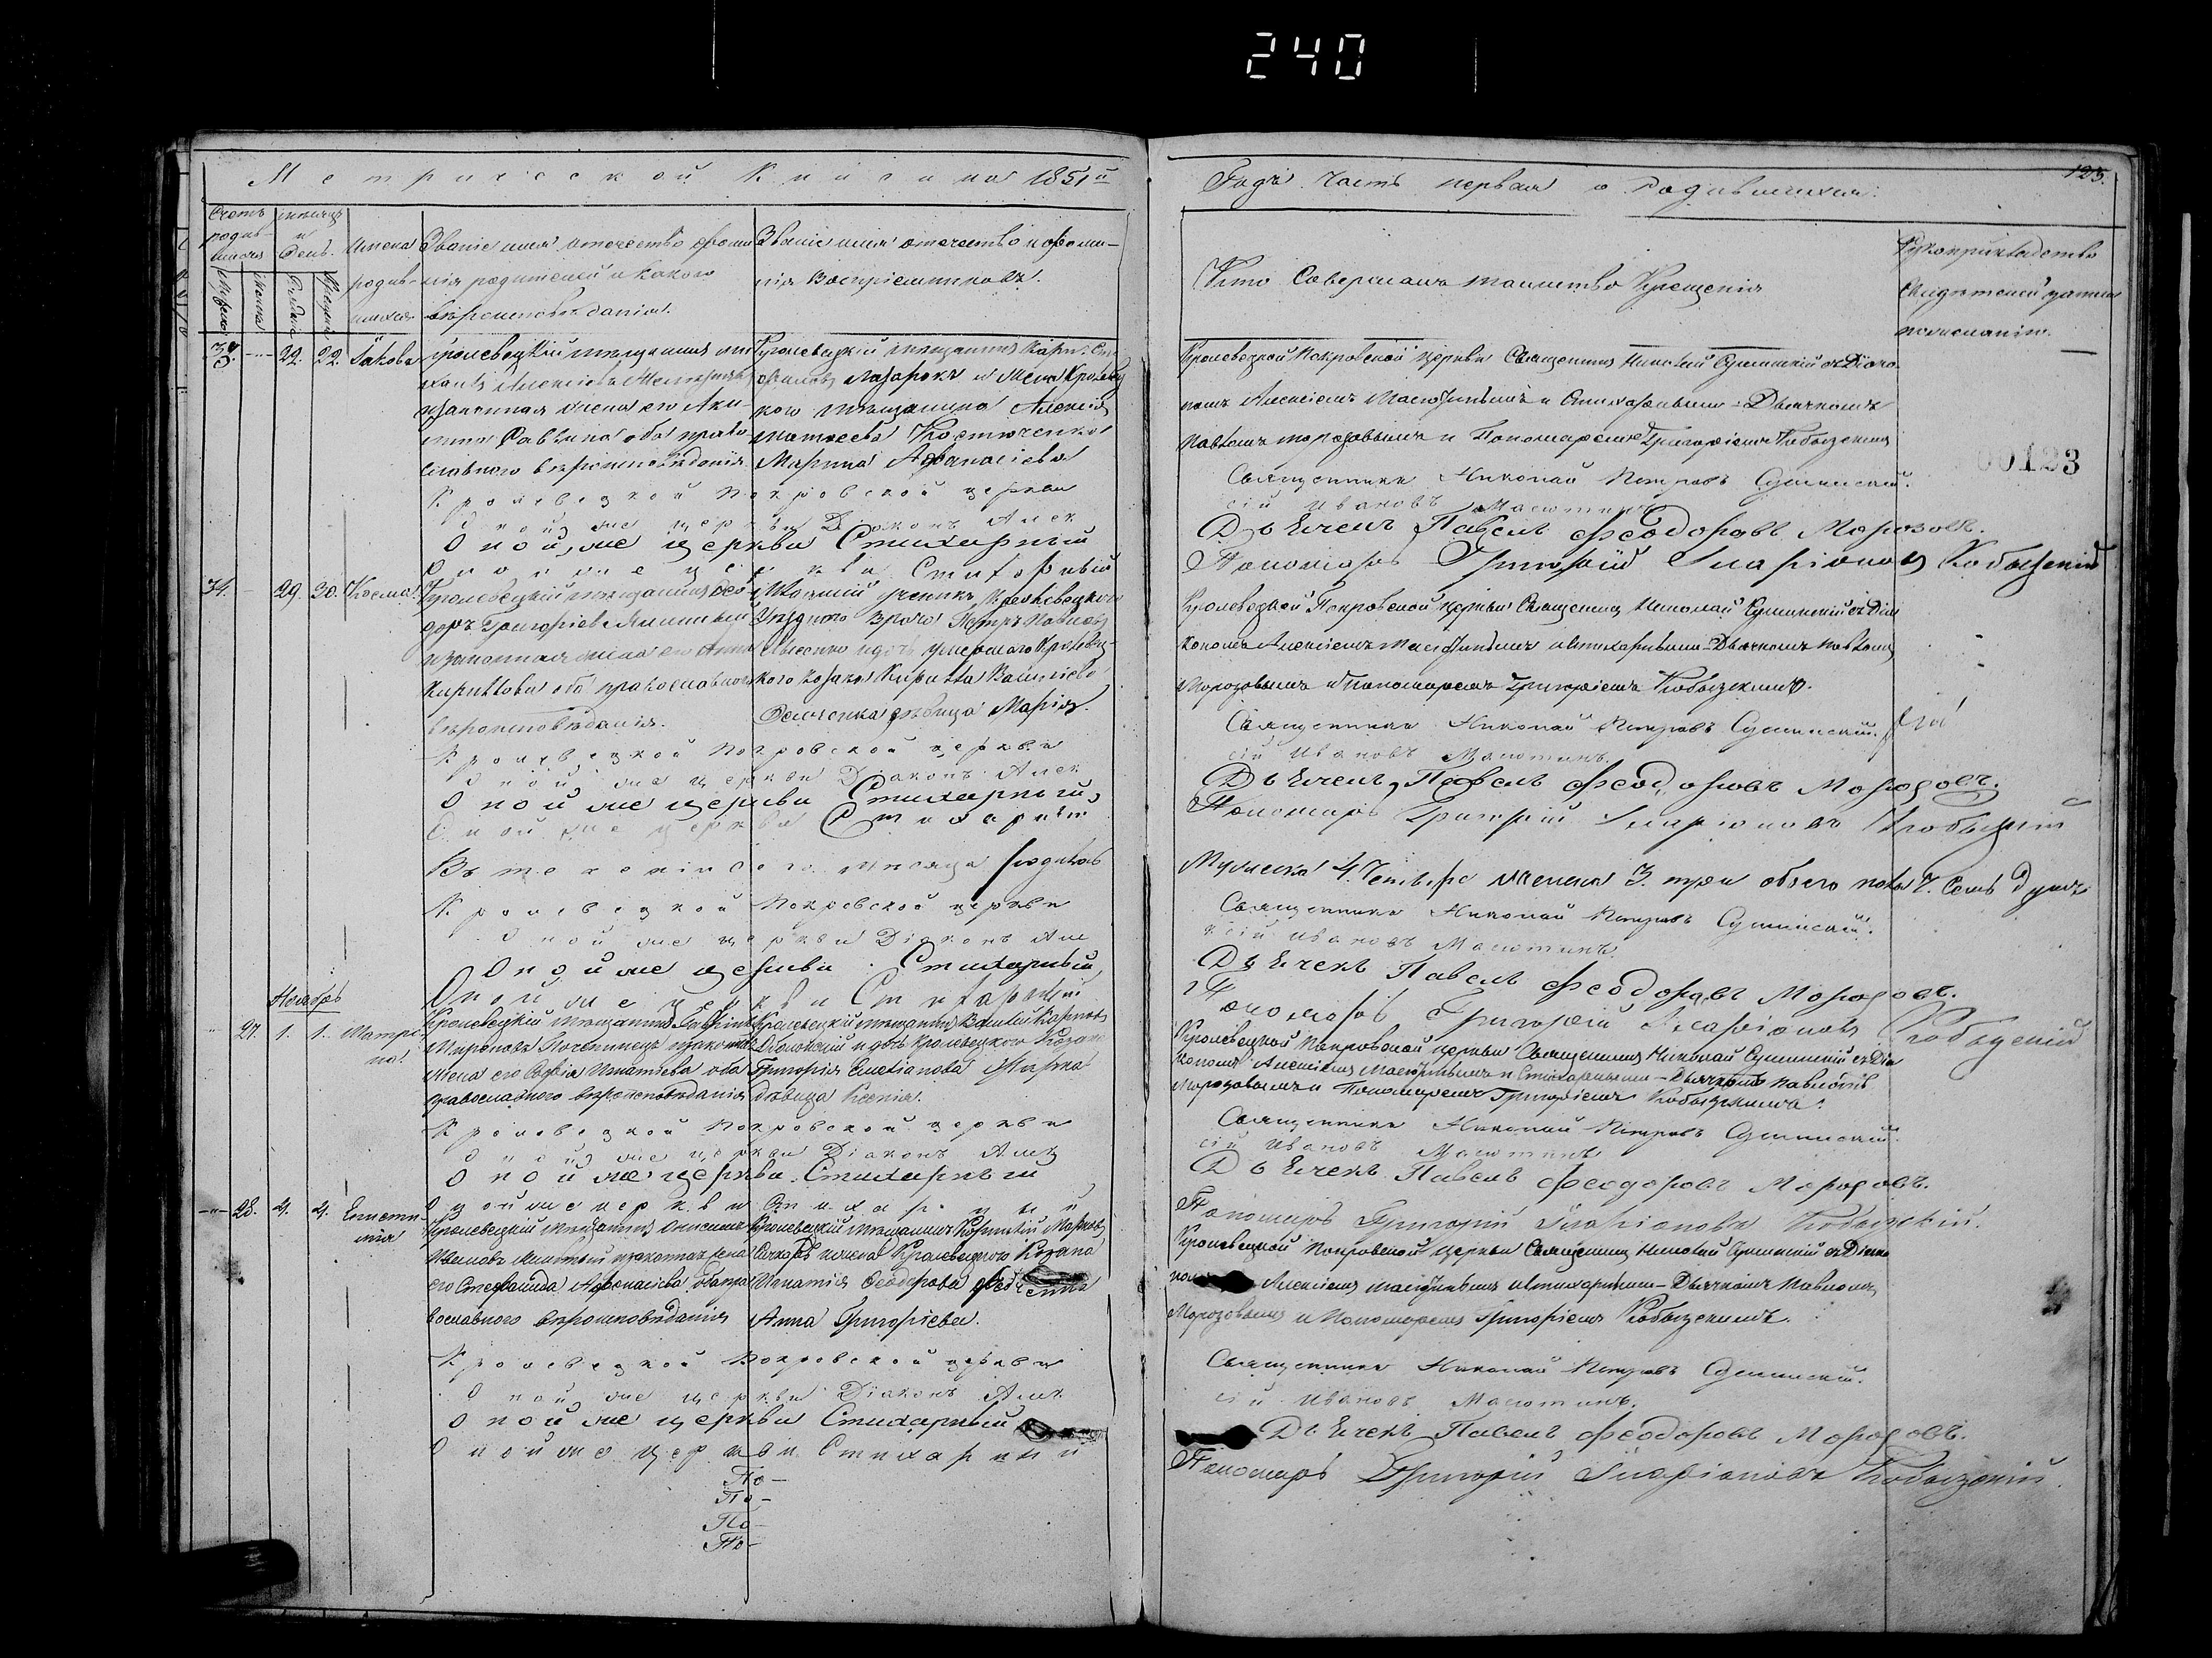 240
Метрической Книги на 1851й
Годъ часть первая о родившихся.
123.
Счетъ родив-
шихся
Мѣсяцъ
и
День.
Имена
родив-
шихся
Званіе имя отечество фами-
лія родителей и какого
вѣроисповѣданія.
Званіе имя отечество и фами-
лія Воспріемниковъ.
Кто Совершалъ таинство Крещенія
Рукоприкладство
Свидѣтелей записи
по желанію.
33. 22. 22. Іаковъ
Кролевецкій мѣщанинъ
Алексіевъ
и законная жена его Аки-
лина Саввина оба право
славнаго вѣроисповѣданія
Кролевецкій мѣщанинъ Карпъ
Лазарокъ и жена Кролевец
кого мѣщанина Алексія
Матѳеева Костюченка
Марина Афанасіева
Кролевецкой Покровской церкви Священникъ Николай Сушинскій съ Діако
номъ Алексіемъ Масютинымъ и Стихарнымъ Дьячкомъ
Павломъ Морозовымъ и Пономаремъ Григоріемъ Кобызскимъ
00123
Кролевецкой Покровской церкви Священникъ Николай Петровъ Сушинскій.
Оной же церкви Діаконъ Алек сій Ивановъ Масютинъ
Оной же церкви Стихарный Дьячекъ Павелъ Феодоровъ Морозовъ.
Оной же церкви Стихарный Пономарь Григорій Иларіоновъ Кобызскій
34. 29. 30. Косма
Кролевецкій мѣщанинъ Ѳео
доръ Григоріевъ
и законная жена его Анна
Кириллова оба православнаго
вѣроисповѣданія.
ученикъ Кролевецкого
Уѣзднаго Врача Петръ Павловъ
и дочь умершаго Кролевец-
кого Козака Кирилла Васильева
дѣвица Марія.
Кролевецкой Покровской церкви Священникъ Николай Сушинскій съ Діа
кономъ Алексіемъ Масютинымъ и Стихарнымъ Дьячкомъ Павломъ
Морозовымъ и Пономаремъ Григоріемъ Кобызскимъ.
Кролевецкой Покровской церкви Священникъ Николай Петровъ Сушинскій.
Оной же церкви Діаконъ Алек сій Ивановъ Масютинъ.
Оной же церкви Стихарный Дьячекъ Павелъ Феодоровъ Морозовъ.
Оной же церкви Стихарный Пономарь Григорій Иларіоновъ Кобызскій
Въ теченіи сего мѣсяца родилось Мужеска 4. Четыре женска 3. три обоего пола 7. Семь душъ
Кролевецкой Покровской церкви Священникъ Николай Петровъ Сушинскій.
Оной же церкви Діаконъ Але ксій Ивановъ Масютинъ
Оной же церкви Стихарный Дьячекъ Павелъ Феодоровъ Морозовъ.
Оной же церкви Стихарный Пономарь Григорій Иларіоновъ Кобызскій
Ноябрь
27. 1. 1. Матро
на.
Кролевецкій мѣщанинъ
Мироновъ и законная
жена его Софія Игнатіева оба
православнаго вѣроисповѣданія
Кролевецкій мѣщанинъ Василій Карповъ
Оболонскій и дочь Кролевецкого Козака
Григорія Емеліанова
дѣвица Ксенія.
Кролевецкой Покровской церкви Священникъ Николай Сушинскій съ Діа
кономъ Алексіемъ Масютинымъ и Стихарнымъ Дьячкомъ Павломъ
Морозовымъ и Пономаремъ Григоріемъ Кобызскимъ.
Кролевецкой Покровской церкви Священникъ Николай Петровъ Сушинскій.
Оной же церкви Діаконъ Алек сій Ивановъ Масютинъ
Оной же церкви Стихарный Дьячекъ Павелъ Феодоровъ Морозовъ.
Оной же церкви Стихарный Пономарь Григорій Иларіоновъ Кобызскій.
28. 4. 4. Еписти-
мія
Кролевецкій мѣщанинъ Онисимъ
и законная жена
его Стефанида Афонасіева оба пра
вославного вѣроисповѣданія
Кролевецкій мѣщанинъ Марковъ
и жена Кролевецкого Козака
Игнатія Ѳеодорова
Анна Григоріева.
Кролевецкой Покровской церкви Священникъ Николай Сушинскій съ Діако
номъ Алексіемъ Масютинымъ и Стихарнымъ Дьячкомъ Павломъ
Морозовымъ и Пономаремъ Григоріемъ Кобызскимъ.
Кролевецкой Покровской церкви Священникъ Николай Петровъ Сушинскій.
Оной же церкви Діаконъ Алек сій Ивановъ Масютинъ.
Оной же церкви Стихарный Дьячекъ Павелъ Феодоровъ Морозовъ.
Оной же церкви Стихарный Пономарь Григорій Иларіоновъ Кобызскій.
По-
По-
По-
По-